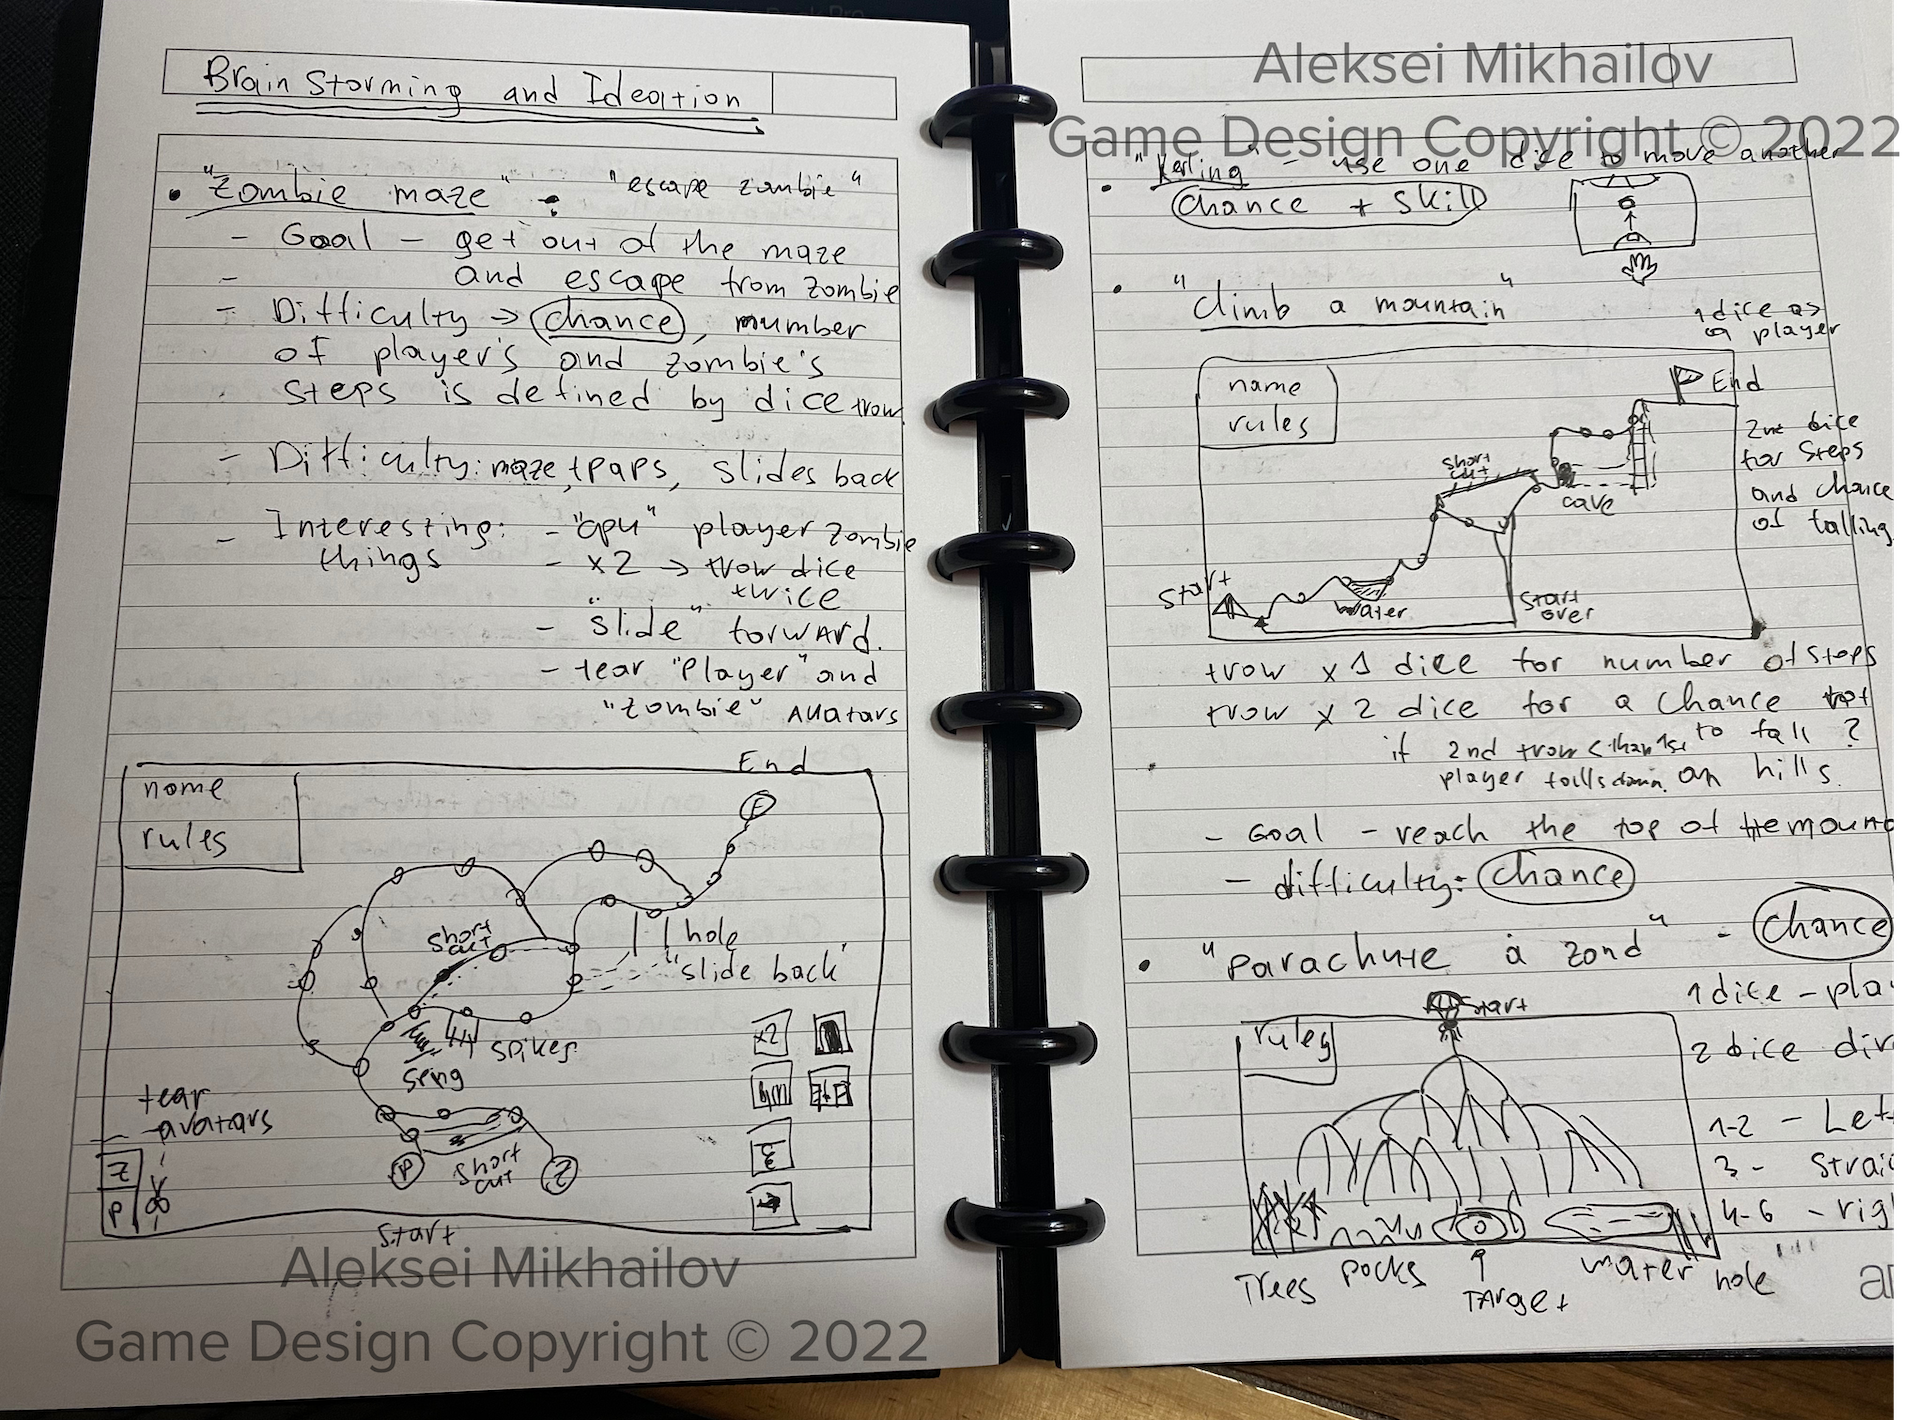 Brain Storming and Ideation
• "Zombie maze" - "escape zombie"
- Goal - get out of the maze
- and escape from zombie
- Difficulty → chance, number
of player's and zombie's
steps is defined by dice trow
- Difficulty: maze, traps, slides back
- Interesting: - "cpu" player zombie
things - x2 → trow dice
twice
- "slide" forward.
- tear "Player" and
"zombie" avatars
End
name
rules
F
short
cut
hole
"slide back"
spikes
x2
tear
avatars
Z
P
P
short
cut
Z
Start
Aleksei Mikhailov
Game Design Copyright © 2022
Aleksei Mikhailov
Game Design Copyright © 2022
• "Kerling" - use one dice to move another
chance + skill
• "Climb a mountain"
1 dice as
a player
name
rules
End
2nd dice
for steps
and chance
of falling
short
cut
cave
Start
water
start
over
trow x 1 dice for number of steps
trow x 2 dice for a chance not
to fall ?
if 2nd trow < than 1st
player falls down. on hills.
- Goal - reach the top of the mount
- difficulty: chance
• "Parachute a zond" - chance
Start
1 dice - pla
rules
2 dice dir
1-2 - Lef
3 - Strai
4-6 - rig
Trees Rocks Target water hole